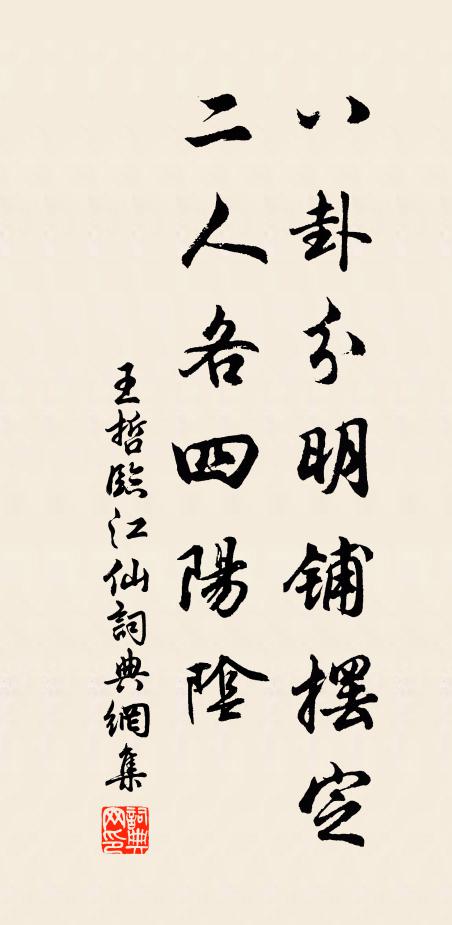 八卦分明铺擺定
二人各四陽陰
王哲臨江仙詞典網集
詞典网印